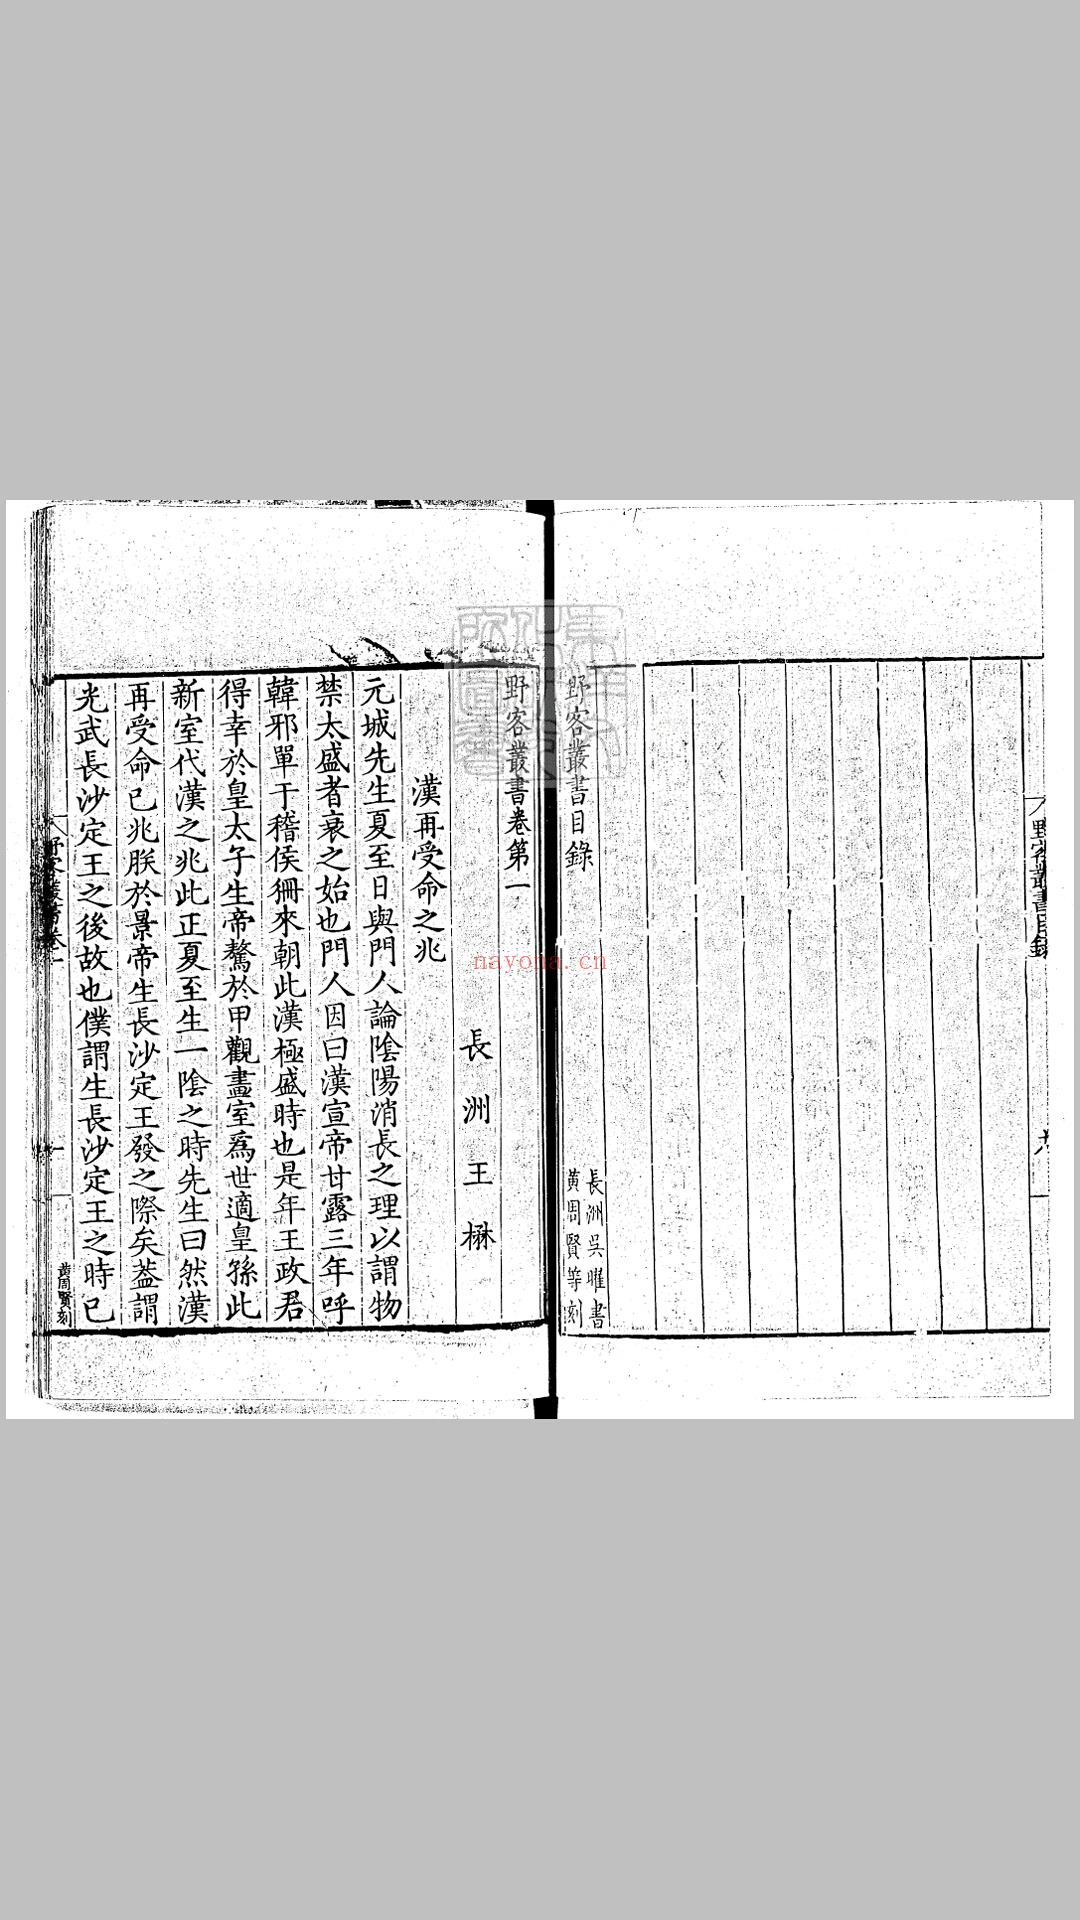 野客叢書目錄
長洲吳曜書
黃周賢等刻
野客叢書目錄
野客叢書卷第一
長洲王楙
漢再受命之兆
元城先生夏至日與門人論陰陽消長之理以謂物
禁太盛者衰之始也門人因曰漢宣帝甘露三年呼
韓邪單于稽侯狦來朝此漢極盛時也是年王政君
得幸於皇太子生帝驁於甲觀畫室爲世適皇孫此
新室代漢之兆此正夏至生一陰之時先生曰然漢
再受命已兆朕於景帝生長沙定王發之際矣葢謂
光武長沙定王之後故也僕謂生長沙定王之時已
野客叢書卷一
一
黃周賢刻
nayona.cn